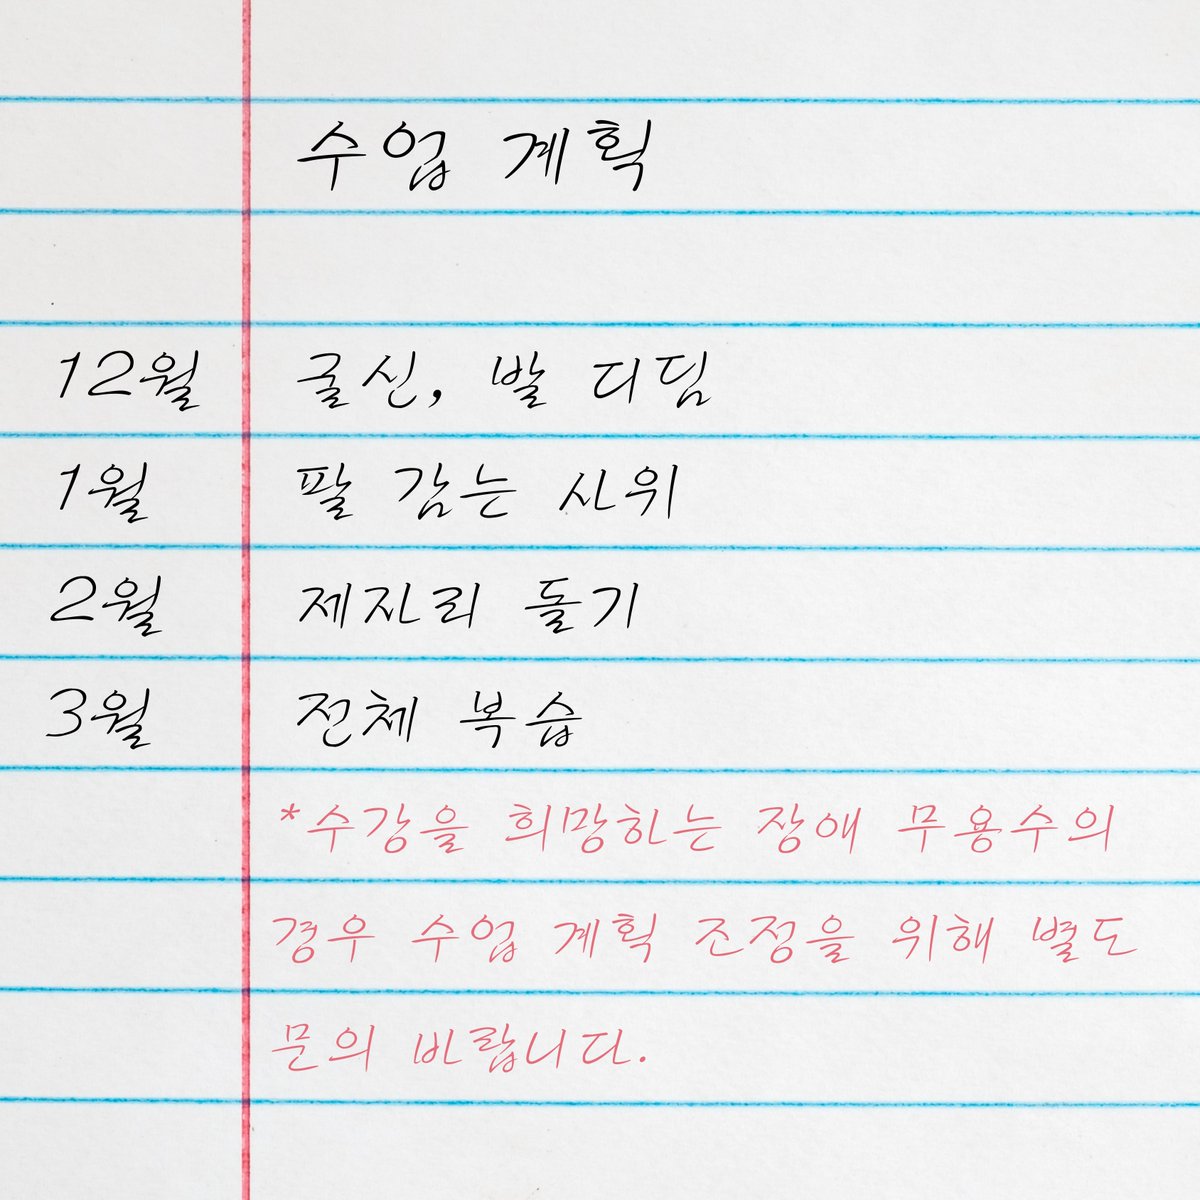 수업 계획
12월 굴신, 발 디딤
1월 팔 감는 사위
2월 제자리 돌기
3월 전체 복습
*수강을 희망하는 장애 무용수의
경우 수업 계획 조정을 위해 별도
문의 바랍니다.